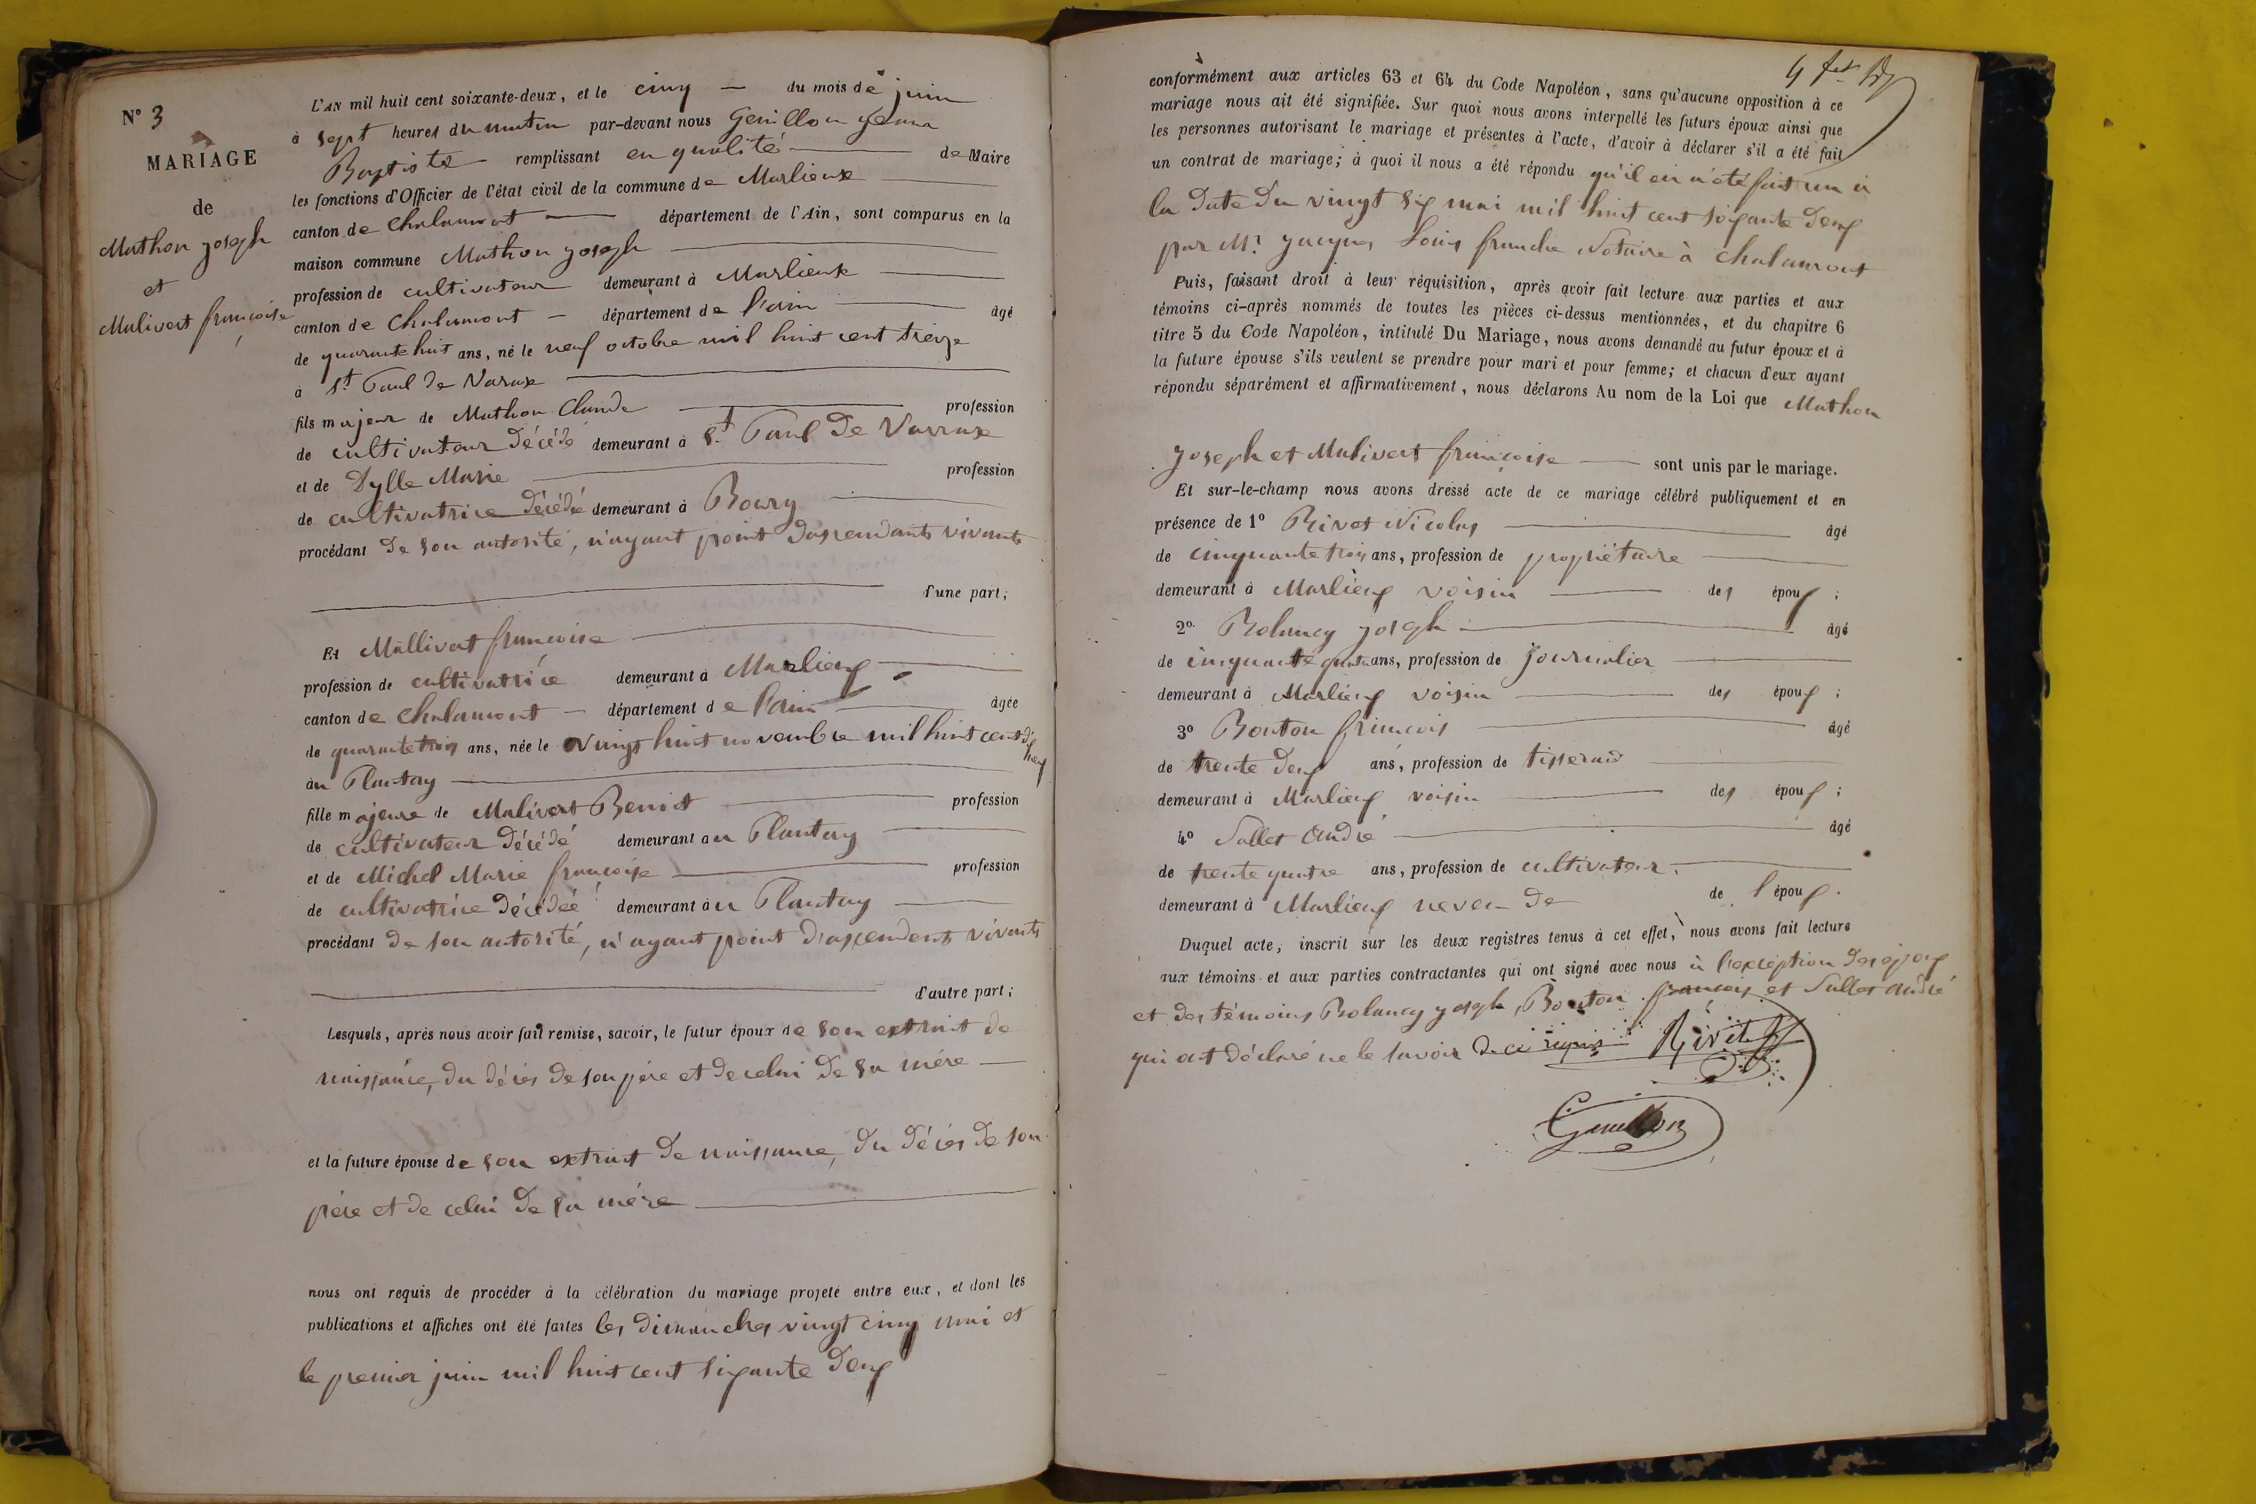 N° 3
MARIAGE
de
Mathon joseph
et
Malivert françoise
L'AN mil huit cent soixante-deux, et le cinq du mois de juin
à sept heures du matin par-devant nous Genillon
Baptiste remplissant en qualité de Maire
les fonctions d'Officier de l'état civil de la commune de Marlieux
canton de Chalamont département de l'Ain, sont comparus en la
maison commune Mathon joseph
profession de cultivateur demeurant à Marlieux
canton de Chalamont département de l'ain âgé
de quarante huit ans, né le neuf octobre mil huit cent treize
à St Paul de Varax
fils majeur de Mathon Claude profession
de cultivateur décédé demeurant à St Paul de Varrax
et de Dylle Marie profession
de cultivatrice décédé demeurant à Bourg
procédant de son autorité, n'ayant point dascendants vivants
d'une part;
Et Mallivert françoise
profession de cultivatrice demeurant à Marlieux
canton de Chalamont département de l'ain âgée
de quarante trois ans, née le vingt huit novembre mil huit cent dix huit
au Plantay
fille majeure de Malivert Benoit profession
de cultivateur décédé demeurant au Plantay
et de Michel Marie françoise profession
de cultivatrice décédée demeurant àu Plantay
procédant de son autorité, n'ayant point d'ascendents vivants
d'autre part;
Lesquels, après nous avoir fait remise, savoir, le futur époux de son extrait de
naissance, du décès de son père et de celui de sa mère
et la future épouse de son extrait de naissance, du décès de son
père et de celui de sa mère
nous ont requis de procéder à la célébration du mariage projeté entre eux, et dont les
publications et affiches ont été faites les dimanches vingt cinq mai et
le premier juin mil huit cent sixante deux
4 fet
conformément aux articles 63 et 64 du Code Napoléon, sans qu'aucune opposition à ce
mariage nous ait été signifiée. Sur quoi nous avons interpellé les futurs époux ainsi que
les personnes autorisant le mariage et présentes à l'acte, d'avoir à déclarer s'il a été fait
un contrat de mariage; à quoi il nous a été répondu qu'il en a été fait un à
la date du vingt six mai mil huit cent soixante deux
par Mr jacques Louis franche Notaire à Chalamont
Puis, faisant droit à leur réquisition, après avoir fait lecture aux parties et aux
témoins ci-après nommés de toutes les pièces ci-dessus mentionnées, et du chapitre 6
titre 5 du Code Napoléon, intitulé Du Mariage, nous avons demandé au futur époux et à
la future épouse s'ils veulent se prendre pour mari et pour femme; et chacun d'eux ayant
répondu séparément et affirmativement, nous déclarons Au nom de la Loi que Mathon
joseph et Malivert françoise sont unis par le mariage.
Et sur-le-champ nous avons dressé acte de ce mariage célébré publiquement et en
présence de 1° Rivet Nicolas âgé
de cinquante trois ans, profession de propriétaire
demeurant à Marlieux voisin des époux;
2° Bolancy joseph âgé
de cinquante quatre ans, profession de journalier
demeurant à Marlieux voisin des époux;
3° Bonton françois âgé
de trente deux ans, profession de tisserand
demeurant à Marlieux voisin des époux;
4° Sallet André âgé
de trente quatre ans, profession de cultivateur
demeurant à Marlieux neveu de de l'époux.
Duquel acte, inscrit sur les deux registres tenus à cet effet, nous avons fait lecture
aux témoins et aux parties contractantes qui ont signé avec nous à l'exception des époux
et des témoins Bolancy joseph, Bonton françois et Sallet André
qui ont déclaré ne le savoir de ce requis Rivet
Genillon